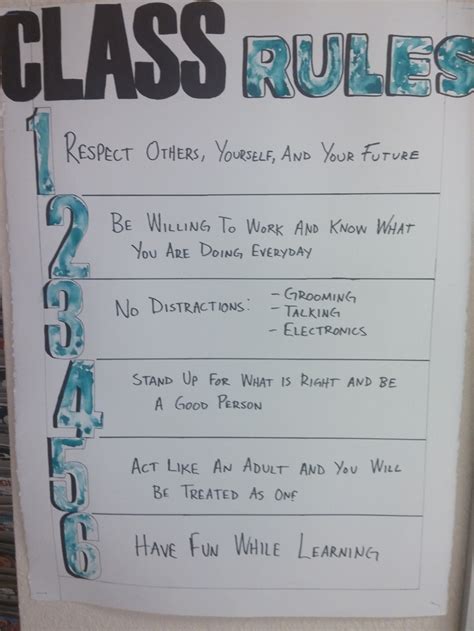 CLASS RULES
1 RESPECT OTHERS, YOURSELF, AND YOUR FUTURE
2 BE WILLING TO WORK AND KNOW WHAT
YOU ARE DOING EVERYDAY
3 NO DISTRACTIONS: - GROOMING
- TALKING
- ELECTRONICS
4 STAND UP FOR WHAT IS RIGHT AND BE
A GOOD PERSON
5 ACT LIKE AN ADULT AND YOU WILL
BE TREATED AS ONE
6 HAVE FUN WHILE LEARNING